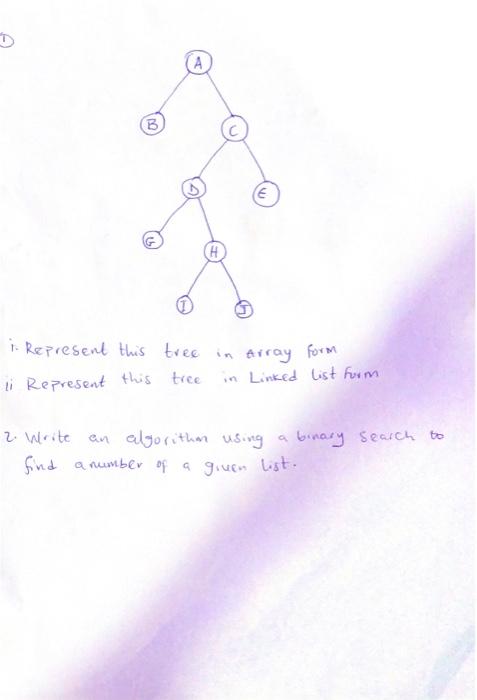 1
A
B
C
D
E
G
H
I
J
i. Represent this tree in Array form
ii Represent this tree in Linked list form
2. Write an algorithm using a binary search to
find a number of a given list.